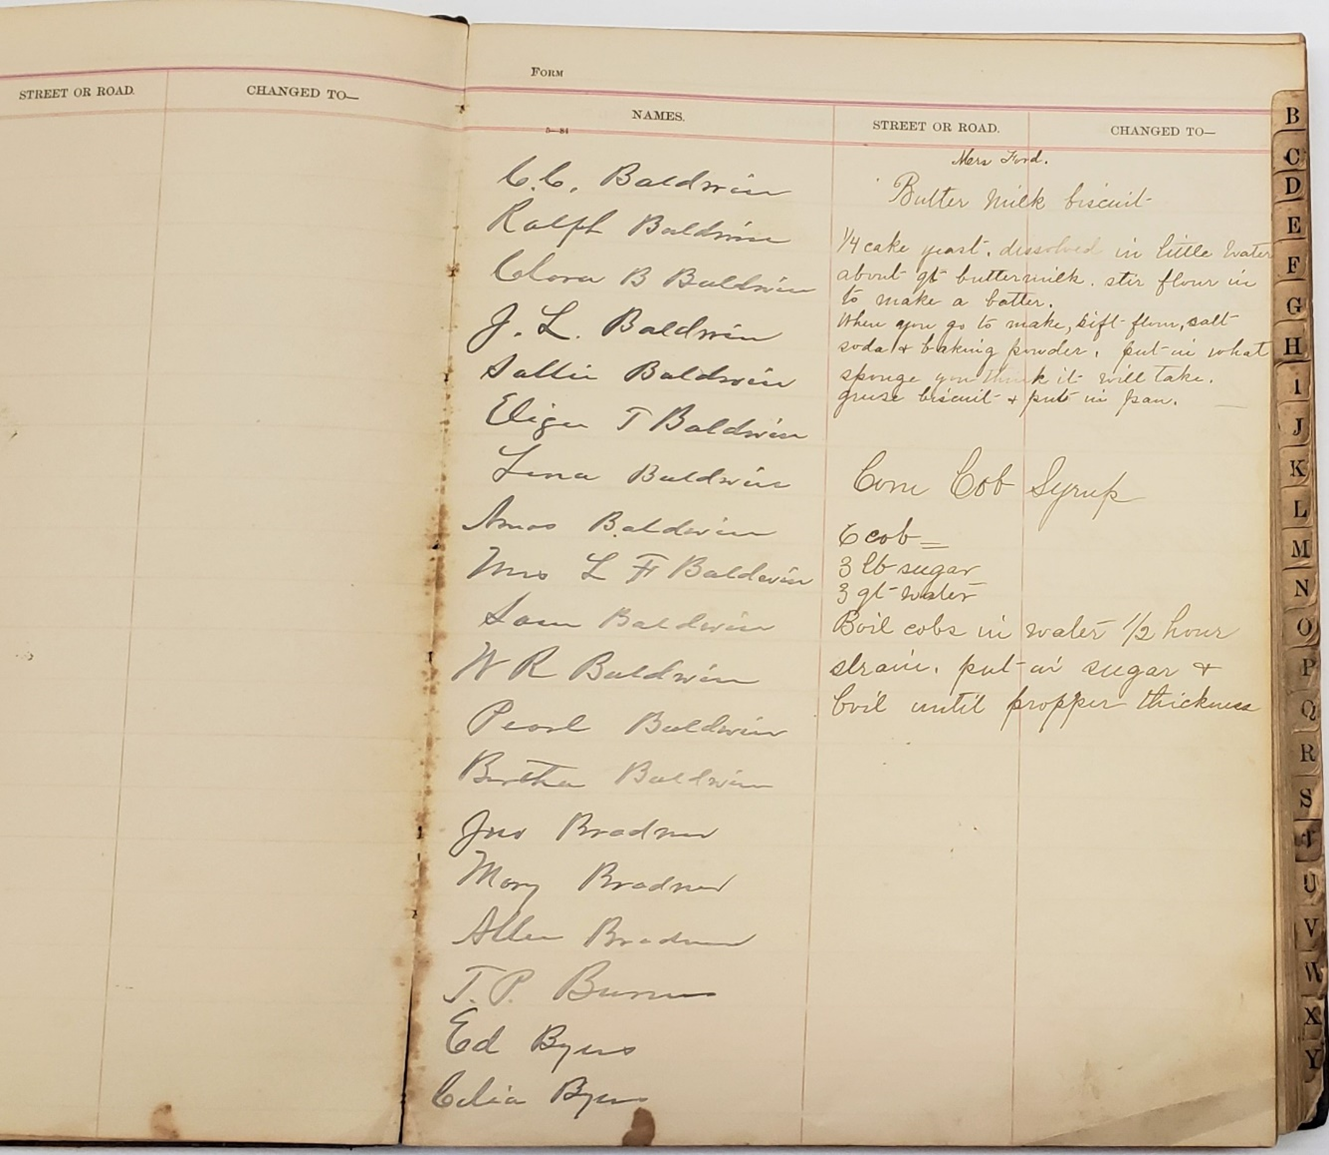 STREET OR ROAD. CHANGED TO—
FORM
NAMES. STREET OR ROAD. CHANGED TO—
5—84
C.C. Baldwin
Ralph Baldwin
Clora B Baldwin
J. L. Baldwin
Sallie Baldwin
Eliga T Baldwin
Lena Baldwin
Amos Baldwin
Mrs L F Baldwin
Sam Baldwin
W R Baldwin
Pearl Baldwin
Bertha Baldwin
Jno Bradner
Mary Bradner
Allen Bradner
T. P. Burns
Ed Byers
Celia Byers
Mrs Ford.
Butter milk biscuit
1/4 cake yeast. dissolved in little water
about qt buttermilk. stir flour in
to make a batter.
When you go to make, sift flour, salt
soda + baking powder. put in what
sponge you think it will take.
grease biscuit + put in pan.
Corn Cob Syrup
6 cob
3 lb sugar
3 qt water
Boil cobs in water 1/2 hour
strain. put in sugar +
boil until propper thickness
B
C
D
E
F
G
H
I
J
K
L
M
N
O
P
Q
R
S
T
U
V
W
X
Y